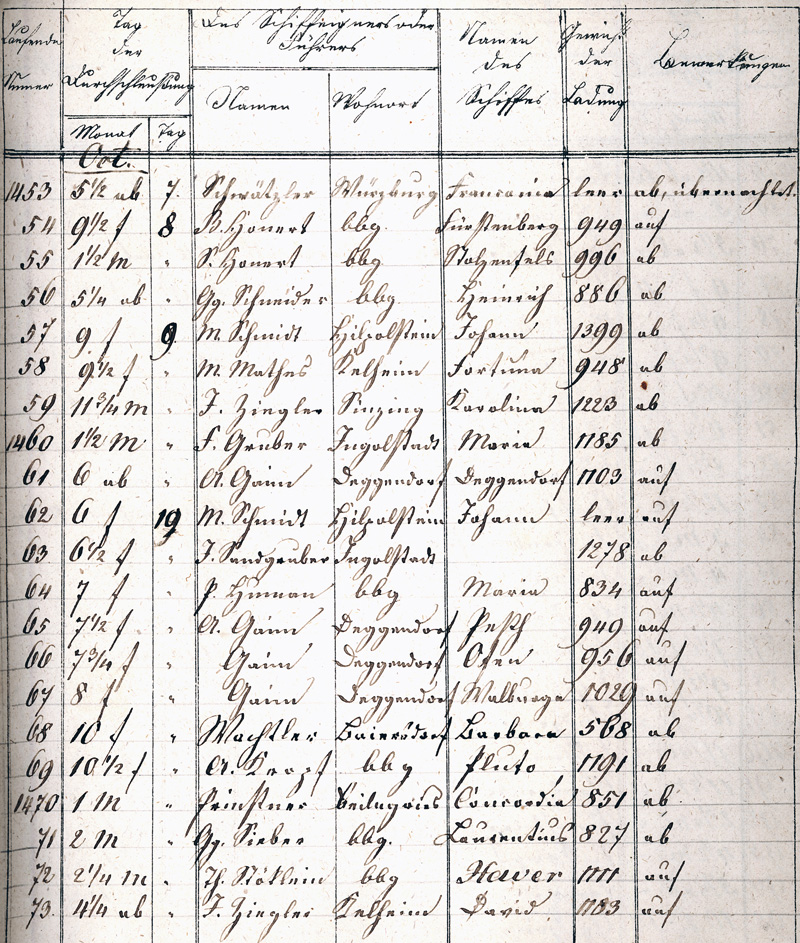 Laufende Numer | Tag der Durchschleußung | Des Schiffeigners oder Führers | Namen des Schiffes | Gewicht der Ladung | Bemerkungen
Monat | Tag | Namen | Wohnort
Oct.
1453 5½ ab 7. Schwätzler Würzburg Franconia leer ab, übernachtet.
54 9½ f 8 B. Honert bbg. Fürstenberg 949 auf
55 1½ M " S. Honert bbg Stolzenfels 996 ab
56 5¼ ab " Gg. Schneider bbg Heinrich 886 ab
57 9 f 9 M. Schmidt Hilpolstein Johann 1399 ab
58 9½ f " M. Mathes Kelheim Fortuna 948 ab
59 11¾ M " J. Ziegler Sinzing Karolina 1223 ab
1460 1½ M " F. Gruber Ingolstadt Maria 1185 ab
61 6 ab " A. Gainn Deggendorf Deggendorf 1103 auf
62 6 f 19 M. Schmidt Hilpolstein Johann leer auf
63 6½ f " J. Sandgruber Ingolstadt 1278 ab
64 7 f " P. Human bbg Maria 834 auf
65 7½ f " A. Gainn Deggendorf Pesth 949 auf
66 7¾ f " Gainn Deggendorf Ofen 956 auf
67 8 f " Gainn Deggendorf Walburga 1029 auf
68 10 f " Wachtler Baiersdorf Barbara 568 ab
69 10½ f " A. Kropf bbg Pluto 1191 ab
1470 1 M " Prinstner Beilngries Concordia 851 ab
71 2 M " Gg. Sieber bbg. Laurentius 827 ab
72 2¼ M " Th. Stöklein bbg Xaver 1111 auf
73. 4¼ ab " J. Ziegler Kelheim David 1183 auf